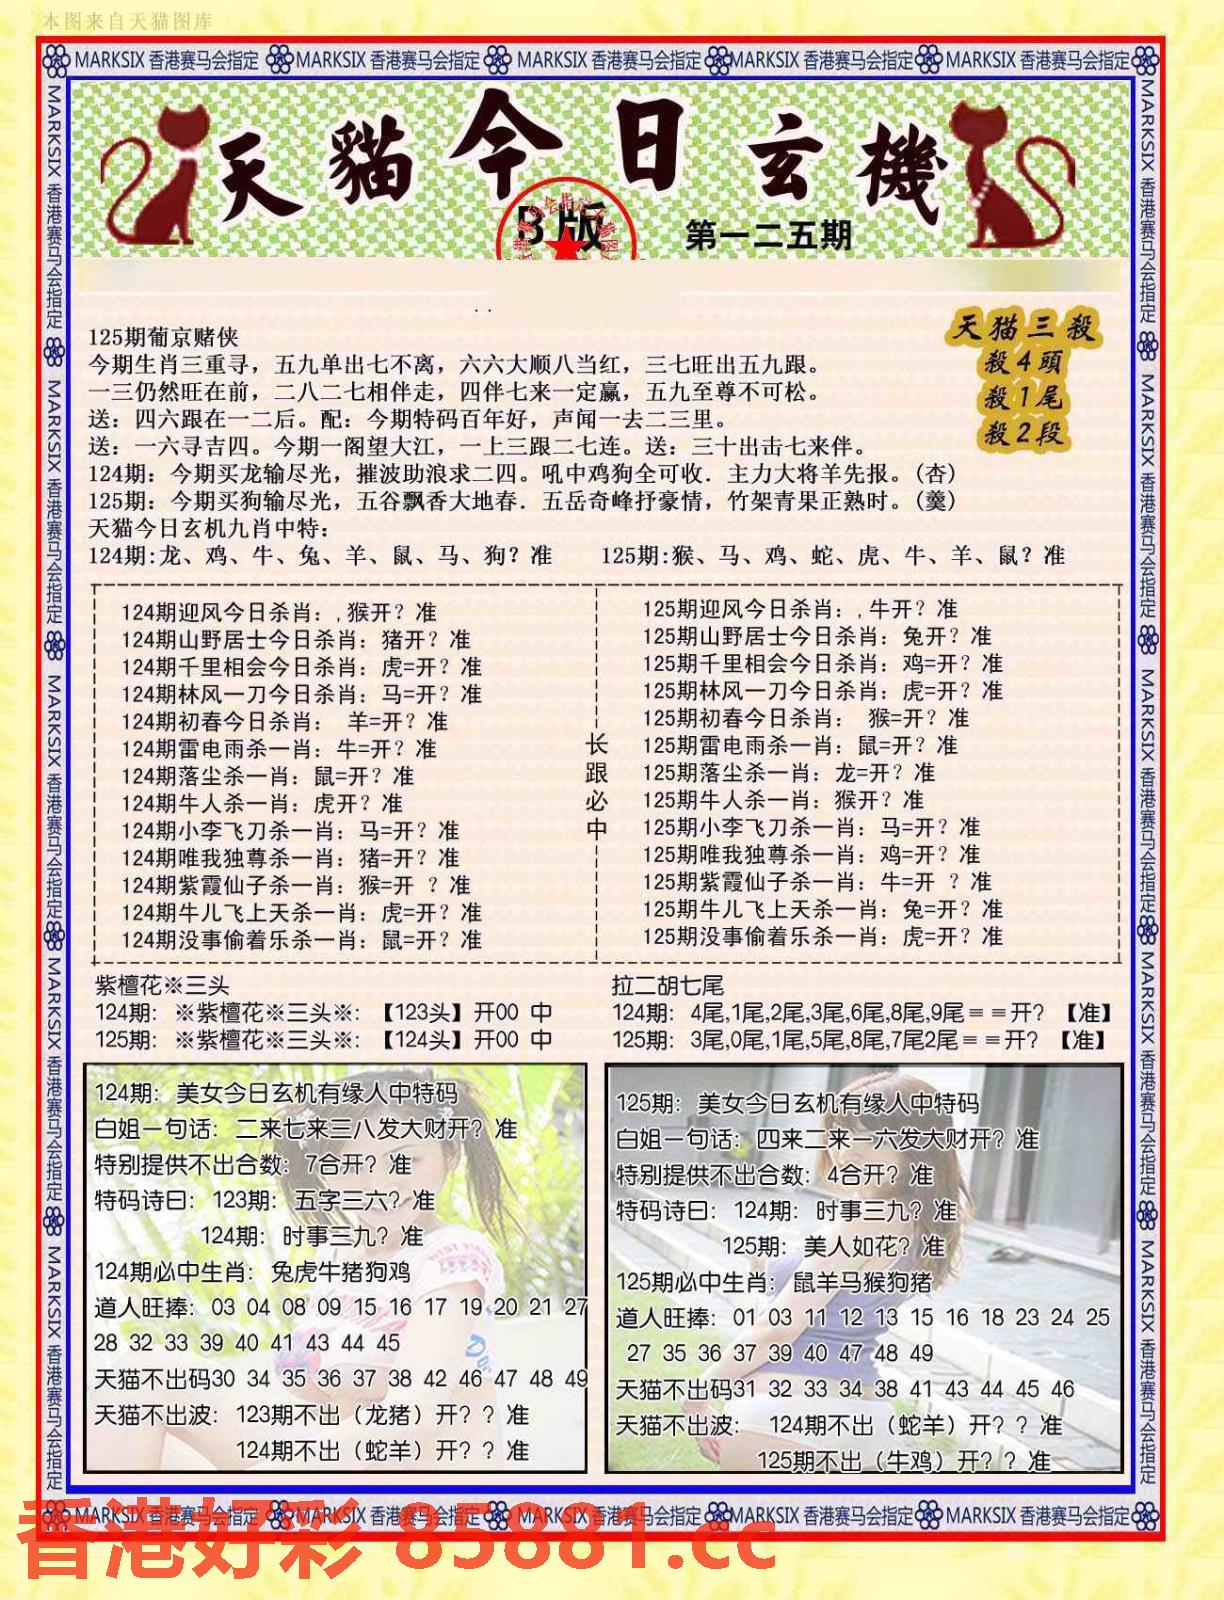 本图来自天猫图库
MARKSIX 香港赛马会指定 MARKSIX 香港赛马会指定 MARKSIX 香港赛马会指定 MARKSIX 香港赛马会指定 MARKSIX 香港赛马会指定
MARKSIX 香港赛马会指定 MARKSIX 香港赛马会指定 MARKSIX 香港赛马会指定 MARKSIX 香港赛马会指定 MARKSIX 香港赛马会指定
天貓今日玄機
B版
第一二五期
天猫三殺
殺4頭
殺1尾
殺2段
125期葡京赌侠
今期生肖三重寻，五九单出七不离，六六大顺八当红，三七旺出五九跟。
一三仍然旺在前，二八二七相伴走，四伴七来一定赢，五九至尊不可松。
送：四六跟在一二后。配：今期特码百年好，声闻一去二三里。
送：一六寻吉四。今期一阁望大江，一上三跟二七连。送：三十出击七来伴。
124期：今期买龙输尽光，摧波助浪求二四。吼中鸡狗全可收．主力大将羊先报。(杏)
125期：今期买狗输尽光，五谷飘香大地春．五岳奇峰抒豪情，竹架青果正熟时。(羹)
天猫今日玄机九肖中特：
124期:龙、鸡、牛、兔、羊、鼠、马、狗？准
125期:猴、马、鸡、蛇、虎、牛、羊、鼠？准
124期迎风今日杀肖：,猴开？准
124期山野居士今日杀肖：猪开？准
124期千里相会今日杀肖：虎=开？准
124期林风一刀今日杀肖：马=开？准
124期初春今日杀肖： 羊=开？准
124期雷电雨杀一肖：牛=开？准
124期落尘杀一肖：鼠=开？准
124期牛人杀一肖：虎开？准
124期小李飞刀杀一肖：马=开？准
124期唯我独尊杀一肖：猪=开？准
124期紫霞仙子杀一肖：猴=开 ？准
124期牛儿飞上天杀一肖：虎=开？准
124期没事偷着乐杀一肖：鼠=开？准
长跟必中
125期迎风今日杀肖：,牛开？准
125期山野居士今日杀肖：兔开？准
125期千里相会今日杀肖：鸡=开？准
125期林风一刀今日杀肖：虎=开？准
125期初春今日杀肖： 猴=开？准
125期雷电雨杀一肖：鼠=开？准
125期落尘杀一肖：龙=开？准
125期牛人杀一肖：猴开？准
125期小李飞刀杀一肖：马=开？准
125期唯我独尊杀一肖：鸡=开？准
125期紫霞仙子杀一肖：牛=开 ？准
125期牛儿飞上天杀一肖：兔=开？准
125期没事偷着乐杀一肖：虎=开？准
紫檀花※三头
124期：※紫檀花※三头※：【123头】开00 中
125期：※紫檀花※三头※：【124头】开00 中
拉二胡七尾
124期：4尾,1尾,2尾,3尾,6尾,8尾,9尾＝＝开？【准】
125期：3尾,0尾,1尾,5尾,8尾,7尾2尾＝＝开？【准】
124期：美女今日玄机有缘人中特码
白姐一句话：二来七来三八发大财开？准
特别提供不出合数：7合开？准
特码诗曰：123期：五字三六？准
124期：时事三九？准
124期必中生肖：兔虎牛猪狗鸡
道人旺捧：03 04 08 09 15 16 17 19 20 21 27
28 32 33 39 40 41 43 44 45
天猫不出码30 34 35 36 37 38 42 46 47 48 49
天猫不出波：123期不出（龙猪）开？？准
124期不出（蛇羊）开？？准
125期：美女今日玄机有缘人中特码
白姐一句话：四来二来一六发大财开？准
特别提供不出合数：4合开？准
特码诗曰：124期：时事三九？准
125期：美人如花？准
125期必中生肖：鼠羊马猴狗猪
道人旺捧：01 03 11 12 13 15 16 18 23 24 25
27 35 36 37 39 40 47 48 49
天猫不出码31 32 33 34 38 41 43 44 45 46
天猫不出波： 124期不出（蛇羊）开？？准
125期不出（牛鸡）开？？准
MARKSIX 香港赛马会指定 MARKSIX 香港赛马会指定 MARKSIX 香港赛马会指定 MARKSIX 香港赛马会指定 MARKSIX 香港赛马会指定
MARKSIX 香港赛马会指定 MARKSIX 香港赛马会指定 MARKSIX 香港赛马会指定 MARKSIX 香港赛马会指定 MARKSIX 香港赛马会指定
香港好彩 85881.cc